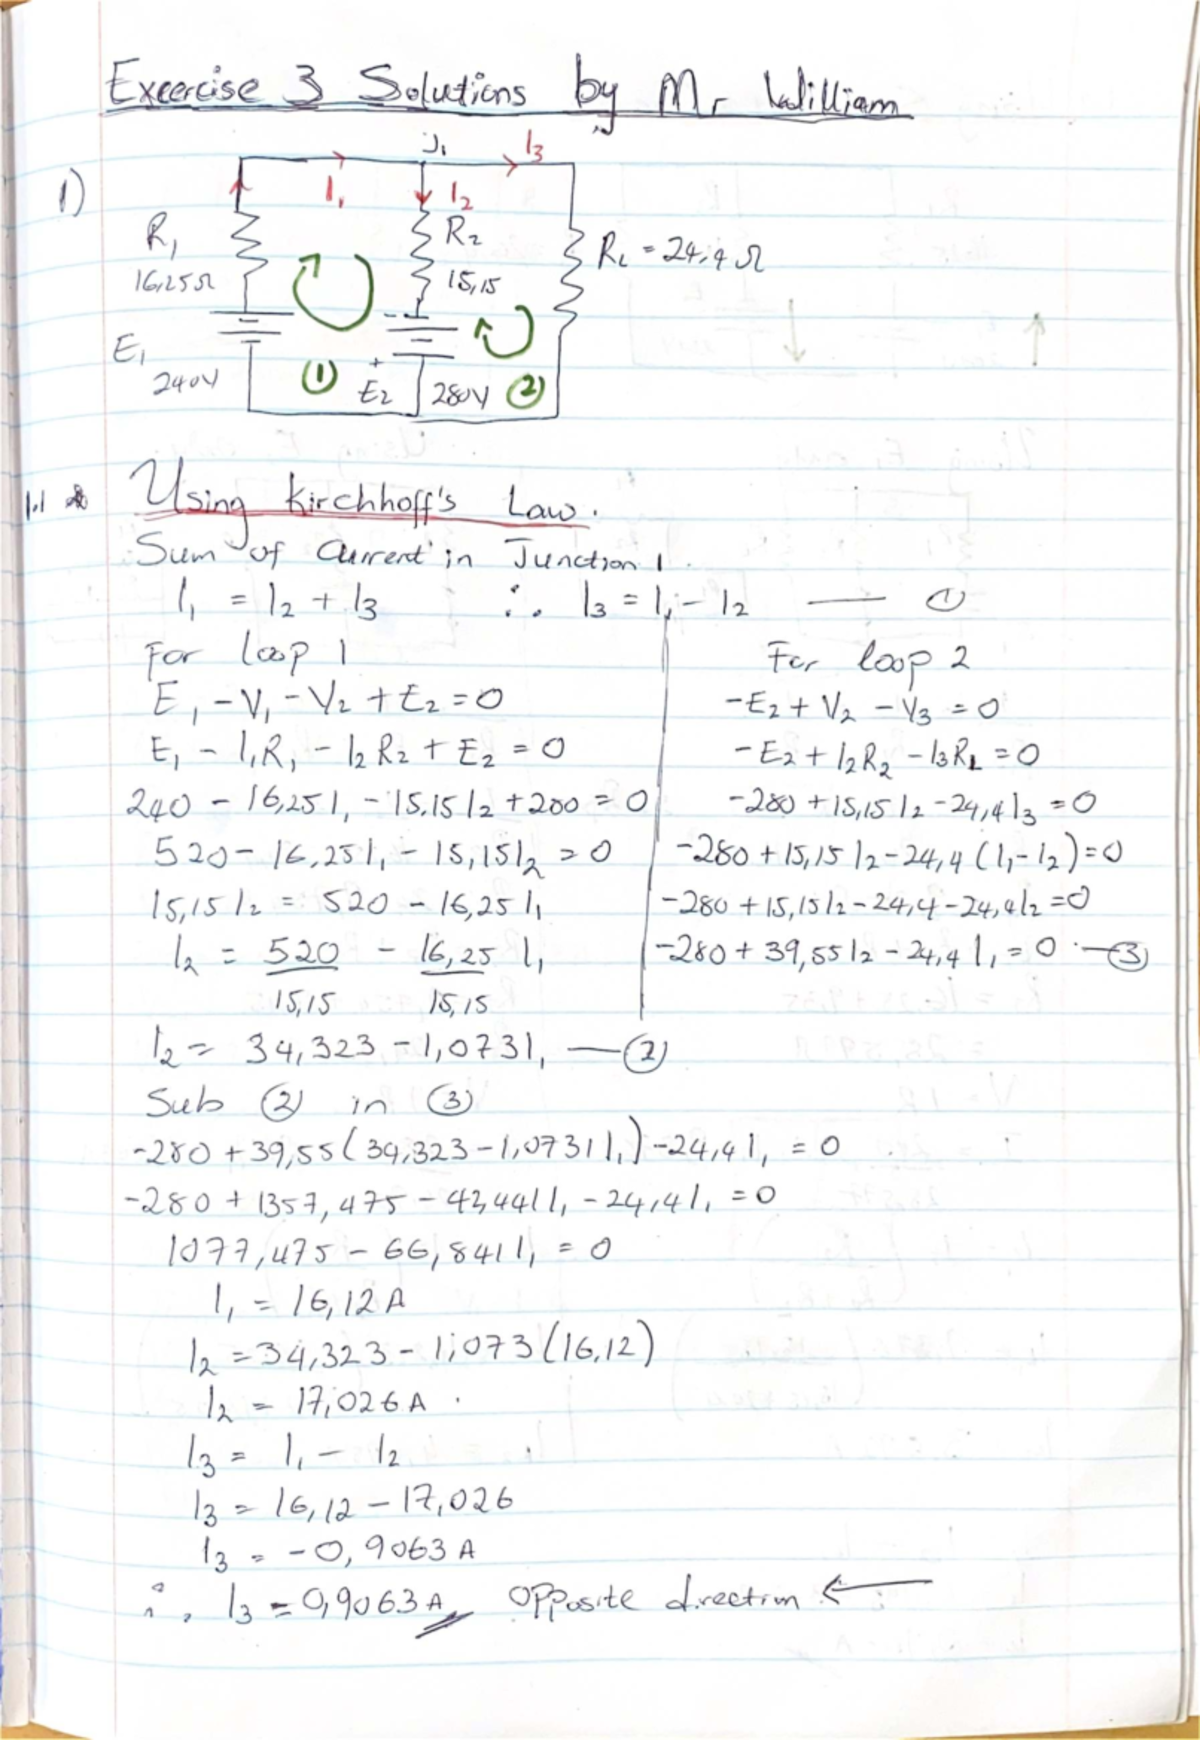 Excercise 3 Solutions by Mr William
1)
J1
I3
I1
I2
R1
R2
RL = 24,4 Ω
16,25Ω
15,15
E1
240V
(1)
E2
280V
(2)
1.1
Using Kirchhoff's Law.
Sum of Current in Junction 1
I1 = I2 + I3 ∴ I3 = I1 - I2 — (1)
For loop 1
E1 - V1 - V2 + E2 = 0
E1 - I1R1 - I2R2 + E2 = 0
240 - 16,25I1 - 15,15I2 + 280 = 0
520 - 16,25I1 - 15,15I2 = 0
15,15I2 = 520 - 16,25I1
I2 = 520/15,15 - 16,25/15,15 I1
I2 = 34,323 - 1,073I1 — (2)
For loop 2
-E2 + V2 - V3 = 0
-E2 + I2R2 - I3RL = 0
-280 + 15,15I2 - 24,4I3 = 0
-280 + 15,15I2 - 24,4(I1 - I2) = 0
-280 + 15,15I2 - 24,4 - 24,4I2 = 0
-280 + 39,55I2 - 24,4I1 = 0 — (3)
Sub (2) in (3)
-280 + 39,55(34,323 - 1,0731I1) - 24,4I1 = 0
-280 + 1357,475 - 42,441I1 - 24,4I1 = 0
1077,475 - 66,841I1 = 0
I1 = 16,12A
I2 = 34,323 - 1,073(16,12)
I2 = 17,026A.
I3 = I1 - I2
I3 = 16,12 - 17,026
I3 = -0,9063A
∴ I3 = 0,9063A opposite direction ←